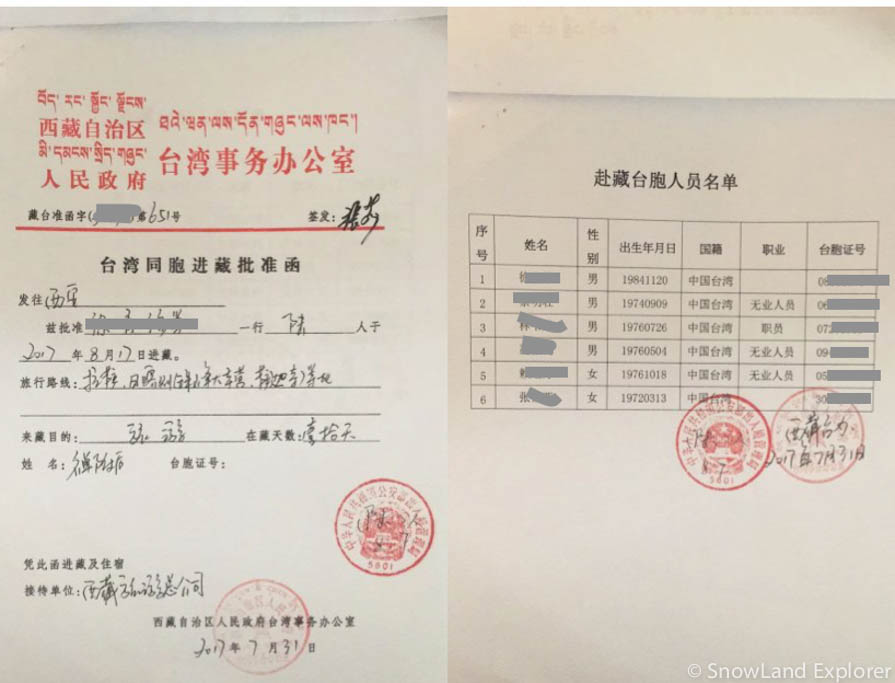 བོད་རང་སྐྱོང་ལྗོངས་
西藏自治区
མི་དམངས་སྲིད་གཞུང་
人民政府
ཐའེ་ཝན་ལས་དོན་གཞུང་ལས་ཁང་།
台湾事务办公室
藏台准函字( 第651号
签发:
台湾同胞进藏批准函
发往西宁
兹批准 一行 陆 人于
2017 年 8 月 17 日进藏。
旅行路线:拉萨、日喀则
来藏目的: 旅游 在藏天数:壹拾天
姓 名: 台胞证号:
凭此函进藏及住宿
接待单位:西藏 旅游总公司
西藏自治区人民政府台湾事务办公室
2017 年 7 月 31 日
中华人民共和国公安部出入境管理局
5601
赴藏台胞人员名单
序号 姓名 性别 出生年月日 国籍 职业 台胞证号
1 徐 男 19841120 中国台湾 08
2 男 19740909 中国台湾 无业人员 06
3 林 男 19760726 中国台湾 职员 07
4 男 19760504 中国台湾 无业人员 09
5 赖 女 19761018 中国台湾 无业人员 05
6 张 女 19720313 中国台湾 30
中华人民共和国公安部出入境管理局
5601
西藏台办
2017年7月31日
© SnowLand Explorer